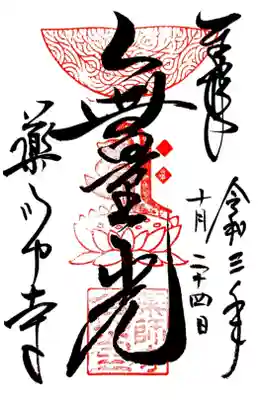 奉拝
令和三年
十月二十四日
無量光
藥師寺